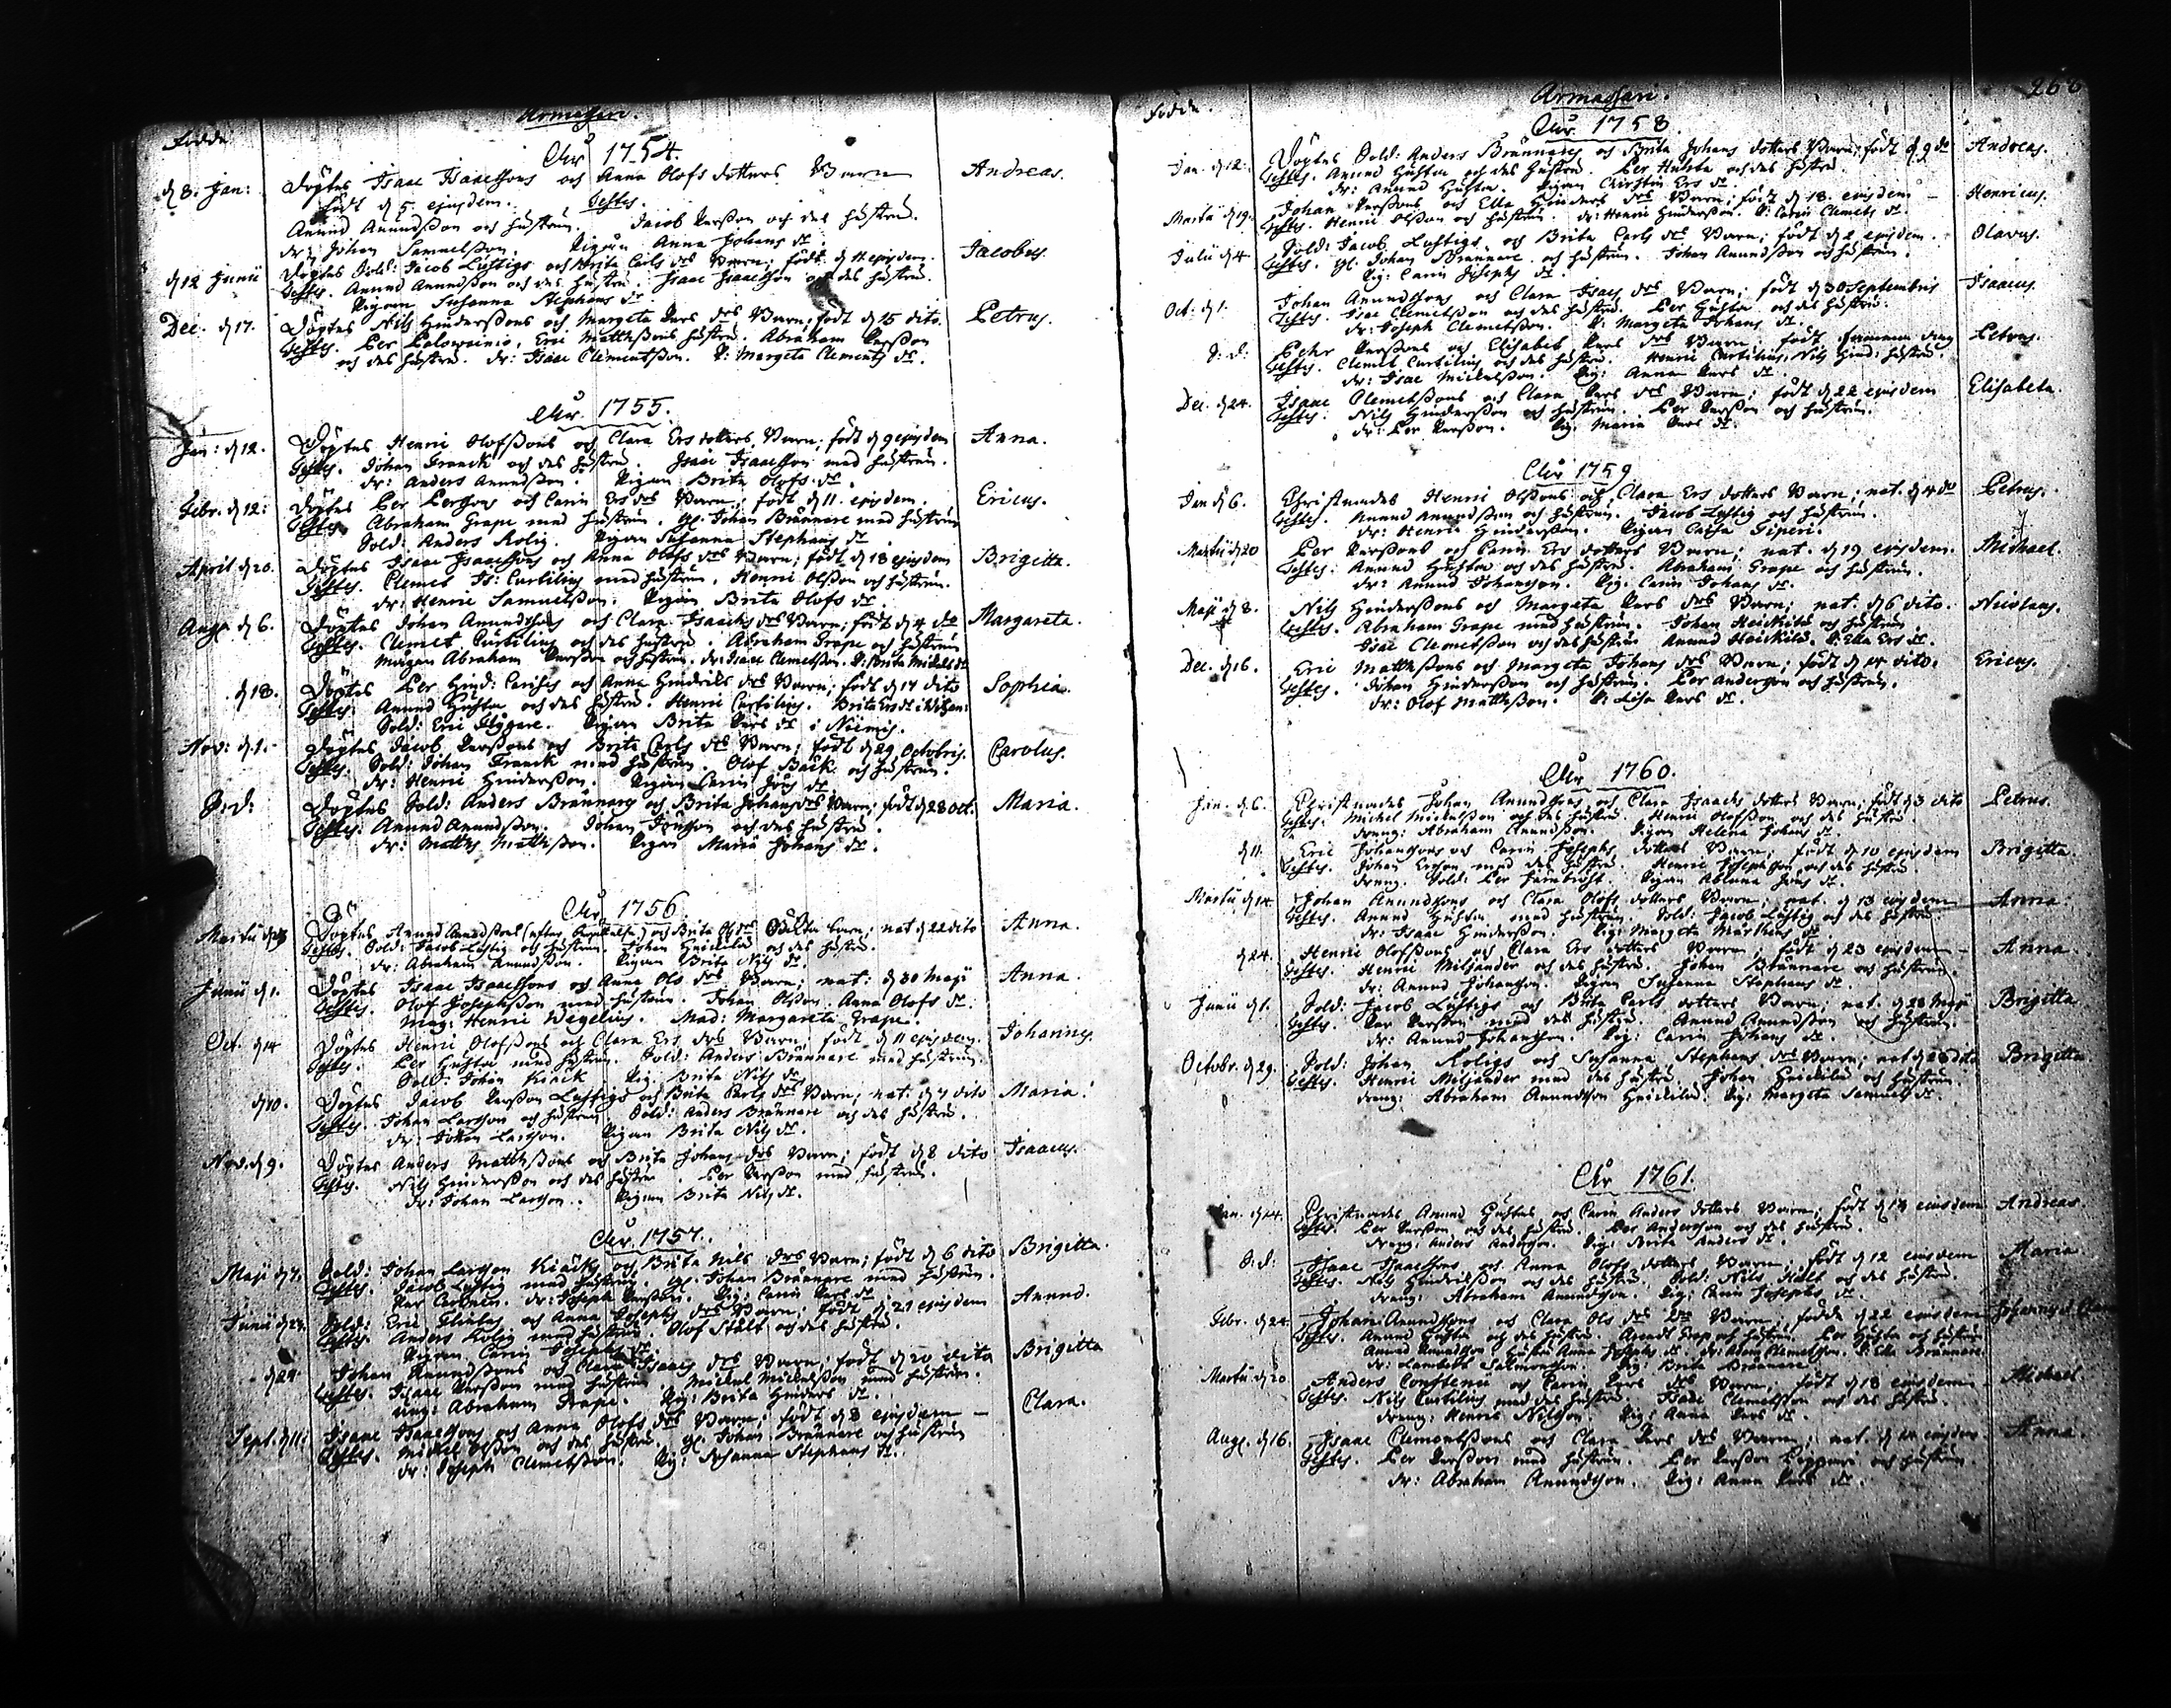 Födde
Armasjärj.
Åhr 1754.
d 8. Jan: Döptes Isaac Isaacssons och Anna Olofs dotters Barn Andreas.
födt d 5. ejusdem. Testes.
Anund Anundsson och hustru. Jacob Persson och des hustru.
dr: Johan Samuelsson. Pigan Anna Johans dr.
d 12 Junii Döptes Sold: Jacob Lustigs och Brita Carls drs Barn; födt d 11 ejusdem. Jacobus.
Testes. Anund Anundsson och des hustru. Isaac Isaacsson och des hustru.
Pigan Susanna Stephans dr
Dec. d 17. Döptes Nils Hinderssons och Margeta Pers drs Barn; födt d 15 dito. Petrus.
Testes. Per Palovainio, Eric Matthssons hustru. Abraham Persson
och des hustru. dr: Isaac Clementsson. P: Margeta Clements dr.
Åhr 1755.
Jan: d 12. Döptes Henric Olofssons och Clara Ers dotters Barn; födt d 9 ejusdem Anna.
Testes. Johan Franck och des hustru. Isaac Isaacsson med hustrun.
dr: Anders Anundsson. Pigan Brita Olofs dr.
Febr. d 12: Döptes Per Perssons och Carin Ers drs Barn; födt d 11. ejusdem. Ericus.
Testes. Abraham Grape med hustrun. gl. Johan Brännare med hustrun
Sold: Anders Rolig. Pigan Susanna Stephans dr
April d 20. Döptes Isaac Isaacssons och Anna Olofs drs Barn; födt d 18 ejusdem Brigitta.
Testes. Clemet Is: Curtilius med hustrun. Henric Olsson och hustrun.
dr: Henric Samuelsson. Pigan Brita Olofs dr.
Aug. d 6. Döptes Johan Anundssons och Clara Isaachs drs Barn; födt d 4 do Margareta.
Testes. Clemet Curtilius och des hustru. Abraham Grape och hustrun
Abraham Persson och hustrun. dr: Isaac Clemetsson. P: Brita Mickels dr
d 18. Döptes Per Hind: och Anna Hindriks drs Barn; födt d 17 dito Sophia.
Testes. Anund Huhta och des hustru. Henric Curtilius. Brita Ers dr
Sold: Eric Flygare. Pigan Brita Pers dr i Niemis.
Nov: d 1. Döptes Jacob Perssons och Brita Carls drs Barn; födt d 29 Octobris. Carolus.
Testes. Sold: Johan Franck med hustrun. Olof Bäck och hustrun.
dr: Henric Hindersson. Pigan Carin Jöns dr
D: d: Döptes Sold: Anders Brännars och Brita Johans drs Barn; födt d 28 Oct. Maria.
Testes. Anund Anundsson. Johan Jönsson och des hustru.
dr: Matths Matthsson. Pigan Maria Johans dr.
Åhr 1756.
Martii Döptes Anund Anundssons och Brita Ols drs Barn; nat d 22 dito Anna.
Testes. Sold: Jacob Lustig och hustrun. Johan Heickilä och des hustru.
dr: Abraham Anundsson. Pigan Brita Nils dr.
Junii d 1. Döptes Isaac Isaacssons och Anna Ols drs Barn; nat: d 30 Maji Anna.
Testes. Olof Josephsson med hustrun. Johan Olsson. Anna Olofs dr.
mag: Henric Wegelius. Mad: Margareta Grape.
Oct. d 14 Döptes Henric Olofssons och Clara Ers drs Barn; födt d 11 ejusdem. Johannes.
Testes. Per Huhta med hustrun. Sold: Anders Brännare med hustrun.
Sold: Johan Kiäck Pig: Brita Nils dr
d 10. Döptes Jacob Persson Lustigs och Brita Carls drs Barn; nat. d 7 dito Maria.
Testes. Johan Larsson och hustrun Sold: Anders Brännare och des hustru.
dr: Johan Larsson. Pigan Brita Nils dr.
Nov. d 9. Döptes Anders Matthssons och Brita Johans drs Barn; födt d 8 dito Isaacus.
Testes. Nils Hindersson och des hustru. Per Persson med hustrun.
dr: Johan Larsson. Pigan Brita Nils dr.
Åhr 1757.
Maji d 7. Sold: Johan Larsson Kiäcks och Brita Nils drs Barn; födt d 6 dito Brigitta.
Testes. Jacob Lustig med hustrun. gl. Johan Brännare med hustrun.
dr: Joseph Persson. Pig: Carin Pers dr
Junii Sold: Eric och Anna Josephs drs Barn; födt d 21 ejusdem Anund.
Testes. Anders Rolig med hustrun. Olof Stålt och des hustru.
Pigan Carin Josephs dr.
d 24. Johan Anundssons och Clara Isaacs drs Barn; födt d 20 dito Brigitta
Testes. Isaac Persson med hustrun Michel Mickelsson med hustrun.
ung: Abraham Grape. Pig: Brita Hinders dr.
Sept. d 11. Isaac Isaacssons och Anna Olofs drs Barn; födt d 8 ejusdem Clara.
Testes. Mickel Olsson och des hustru. gl. Johan Brännare och hustrun
dr: Joseph Clemetsson. Pig: Susanna Stephans dr.
268
Födde.
Armasjärj.
Åhr 1758.
Jan. d 12. Döptes Sold: Anders Brännares och Brita Johans dotters Barn; födt d 9 do Andreas.
Testes. Anund Huhta och des hustru. Per Huhta och des hustru.
dr: Anund Huhta. Pigan Christin Ers dr.
Martii d 19. Johan Perssons och Ella Hinders drs Barn; födt d 18. ejusdem Henricus.
Testes. Henric Olsson och hustrun. dr: Henric Hindersson. P: Carin Clemets dr.
Julii d 4 Sold: Jacob Lustigs och Brita Carls drs Barn; födt d 2 ejusdem. Olavus.
Testes. gl. Johan Brännare och hustrun. Johan Anundsson och hustrun.
Pig: Carin Josephs dr.
Oct: d 1. Johan Anundssons och Clara Isacs drs Barn; födt d 30 Septembris Isaacus.
Testes. Isac Clemetsson och des hustru. Per Huhta och des hustru.
dr: Joseph Clemetsson. P: Margeta Johans dr.
D: d: Pehr Perssons och Elisabet Pers drs Barn; födt samma dag Petrus.
Testes. Clemet Curtilius och des hustru. Henric Curtilius, Nils Hind: hustru.
dr: Isac Mickelsson. Pig: Anna Pers dr.
Dec. d 24. Isaac Clemetssons och Clara Pers drs Barn; födt d 22 ejusdem Elisabeta.
Testes. Nils Hindersson och hustrun. Per Persson och hustrun.
dr: Per Persson. Pig: Maria Pers dr.
Åhr 1759
Jan d 6. Christnades Henric Olssons och Clara Ers dotters Barn; nat. d 4 do Petrus.
Testes. Anund Anundsson och hustrun. Jacob Lustig och hustrun.
dr: Henric Hindersson. Pigan Caisa Piperi.
Martii d 20 Per Perssons och Carin Ers dotters Barn; nat. d 19 ejusdem. Michael.
Testes. Anund Huhta och des hustru. Abraham Grape och hustrun.
dr: Anund Johansson. Pig: Carin Johans dr.
Maji d 8. Nils Hinderssons och Margeta Pers drs Barn; nat. d 6 dito. Nicolaus.
Testes. Abraham Grape med hustrun. Johan Heickilä och hustrun.
Isac Clemetsson och des hustru Anund Heickilä. P: Ella Ers dr.
Dec. d 16. Eric Matthssons och Margeta Johans drs Barn; födt d 14 dito. Ericus.
Testes. Johan Hindersson och hustrun. Per Andersson och hustrun.
dr: Olof Matthsson. P: Lisa Pers dr.
Åhr 1760.
Jan. d 6. Christnades Johan Anundssons och Clara Isaachs dotters Barn; födt d 3 dito Petrus.
Testes. Michel Mickelsson och des hustru. Henric Olofsson och des hustru.
dreng: Abraham Anundsson. Pigan Helena Johans dr.
d 11. Eric Johanssons och Carin Josephs dotters Barn; födt d 10 ejusdem Brigitta.
Testes. Johan Ersson med des hustru Henric Josephsson och des hustru.
dreng. Sold: Per Pigan Jöns dr.
Martii d 14 Johan Anundssons och Clara Olofs dotters Barn; nat. d 13 ejusdem Anna.
Testes. Anund Huhta med hustrun. Sold: Jacob Lustig och des hustru.
dr: Isaac Hindersson. Pig: Margeta Matthias dr.
d 24. Henric Olofssons och Clara Ers dotters Barn; födt d 23 ejusdem Anna
Testes. Henric Miljander och des hustru. Johan Brännare och hustrun.
dr: Anund Johansson. Pigan Susanna Stephans dr.
Junii d 1. Sold: Jacob Lustigs och Brita Carls dotters Barn; nat. d 28 Maji Brigitta
Testes. Per Persson med des hustru. Anund Anundsson och hustrun.
dr: Anund Johansson. Pig: Carin Johans dr.
Octobr. d 29. Sold: Johan Roligs och Susanna Stephans drs Barn; nat d 28 dito Brigitta
Testes. Henric Miljander med des hustru. Johan Heickilä och hustrun.
dreng: Abraham Anundsson Heickilä. Pig: Margeta Samuels dr.
Åhr 1761.
Jan. d 14. Christnades Anund Huhtas och Carin Anders dotters Barn; födt d 13 ejusdem Andreas.
Testes. Per Persson och des hustru. Per Andersson och des hustru.
dreng: Anders Andersson. Pig: Brita Anders dr.
D: d: Isaac Isaacssons och Anna Olofs dotters Barn; födt d 12 ejusdem Maria
Testes. Nils Hindriksson och des hustru. Sold: Nils Hult och des hustru.
dreng: Abraham Anundsson. Pig: Carin Josephs dr.
Febr. d 24 Johan Anundssons och Clara Ols drs Barn, födde d 22 ejusdem Johannes
Testes. Anund Huhta och des hustru. Per Huhta och hustrun
Anund Anundsson hustru Anna Josephs dr. dr: Adam Clemetsson. P: Ella Brännare.
dr: Lambert Salomonsson. Pig: Brita Brännare.
Martii d 20 Anders Consteniii och Carin Pers drs Barn; födt d 18 ejusdem Michael
Testes. Nils Curtilius med des hustru. Isaac Clemetsson och des hustru.
dreng: Henric Nilsson. Pig: Anna Pers dr.
Aug. d 16. Isaac Clementssons och Clara Pers drs Barn; nat. d 14 ejusdem Anna.
Testes. Per Persson med hustrun. Per Persson och hustrun.
dr: Abraham Anundsson. Pig: Anna Pers dr.